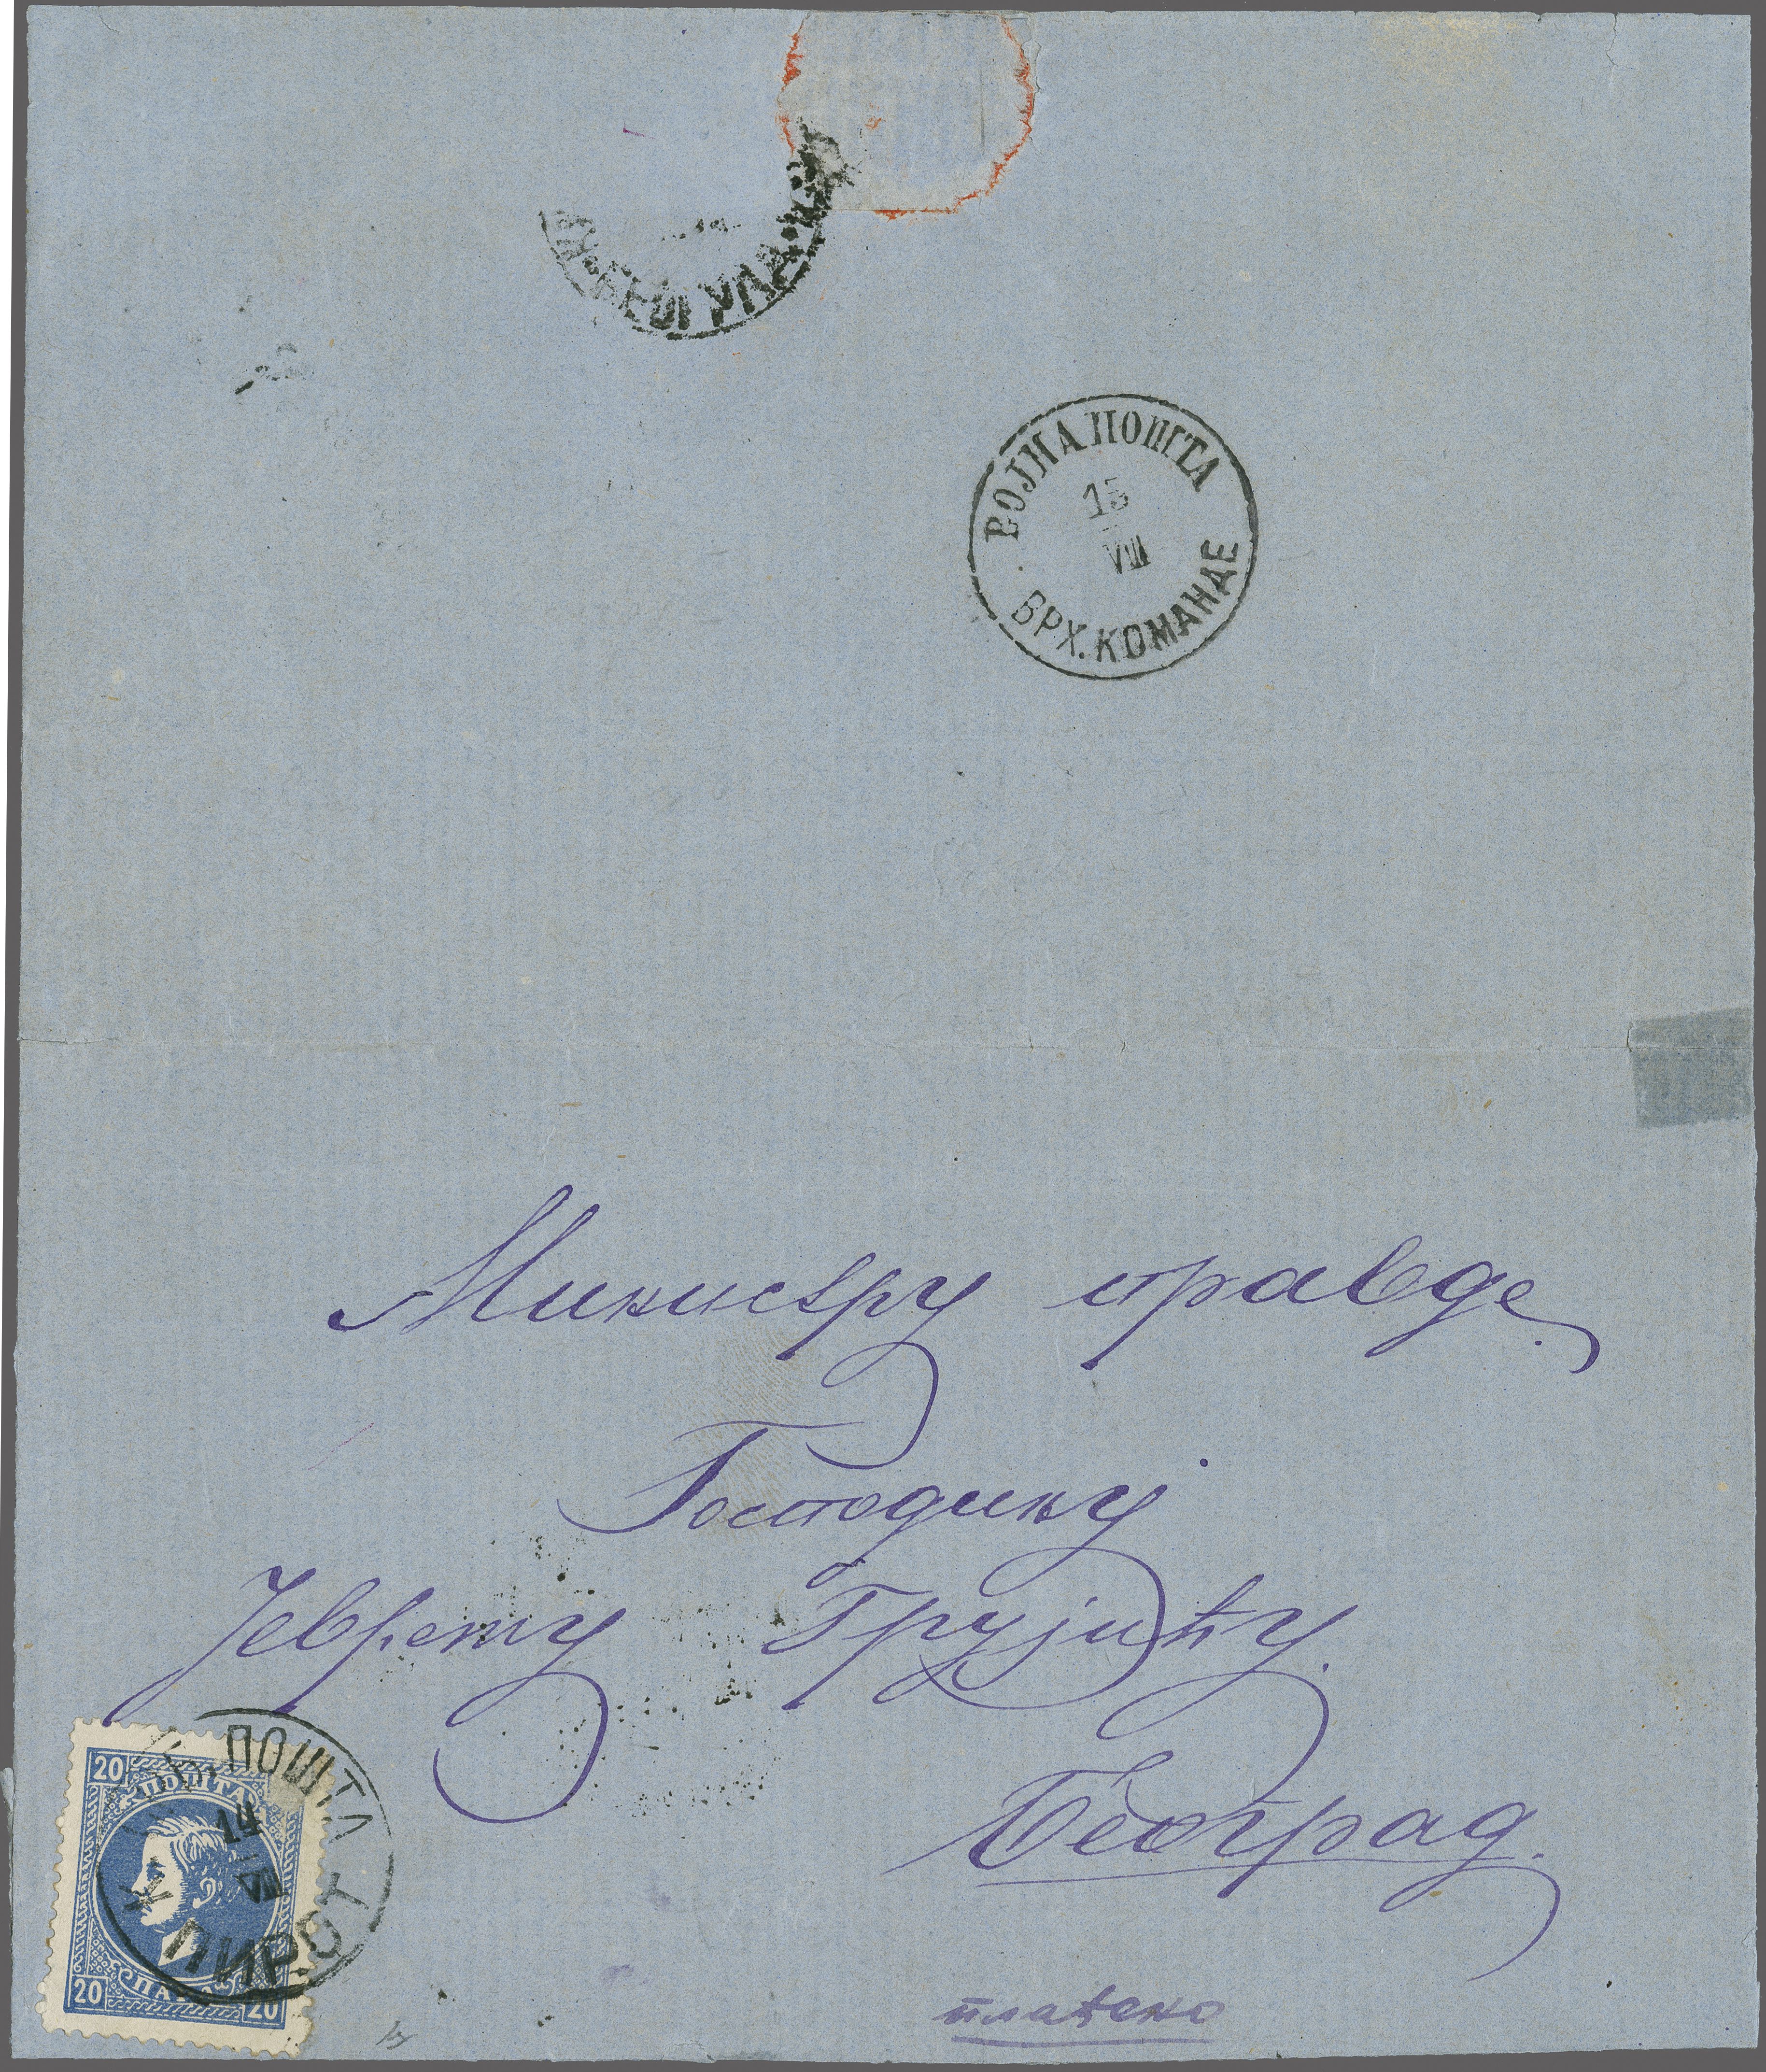 ВОЈНА ПОШТА
VIII
ВРХ. КОМАНДЕ
Министру правде
Господину
Јеврему Грујићу.
Београд.
плаћено
ПОШТА
14
VIII
ПИРОТ
20
ПОШТА
ПАРА
20
20